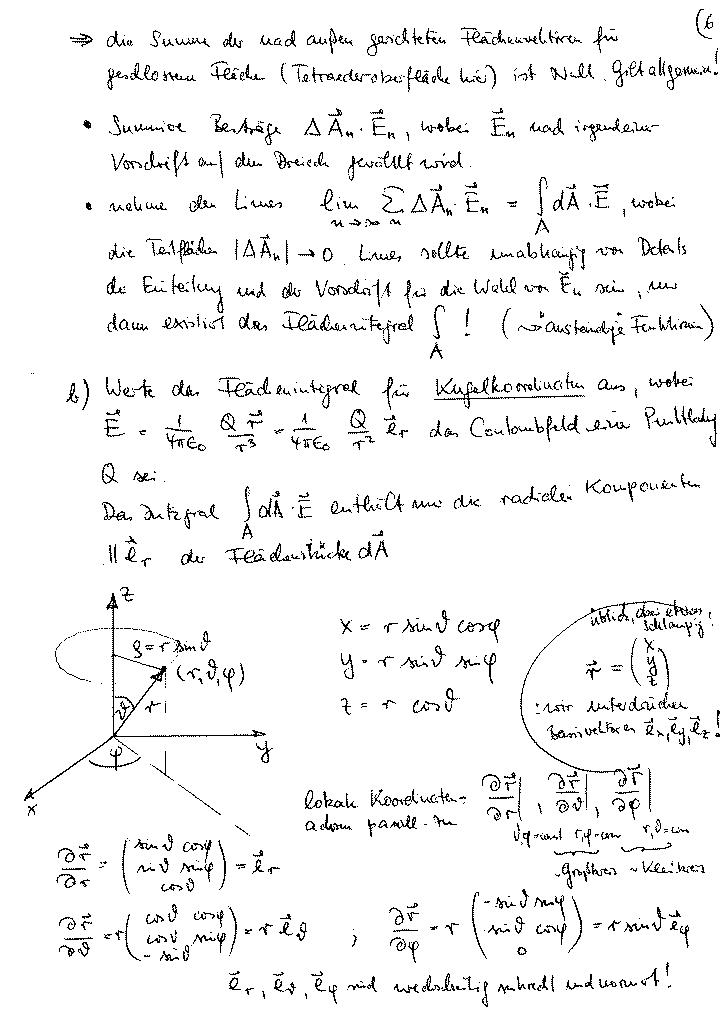 (6
⇒ die Summe der nach außen gerichteten Flächenvektoren für
geschlossene Flächen (Tetraederoberfläche hier) ist Null. Gilt allgemein!
• Summiere Beiträge ΔA⃗ₙ · E⃗ₙ, wobei E⃗ₙ nach irgendeiner
Vorschrift auf dem Dreieck gewählt wird.
• nehme den Limes lim_{n→∞} ∑_n ΔA⃗ₙ · E⃗ₙ = ∫_A dA⃗ · E⃗, wobei
die Teilflächen |ΔA⃗ₙ| → 0. Limes sollte unabhängig von Details
der Einteilung und der Vorschrift für die Wahl von E⃗ₙ sein, nur
dann existiert das Flächenintegral ∫_A ! (↝ "anständige" Funktionen)
b) Werte das Flächenintegral für Kugelkoordinaten aus, wobei
E⃗ = 1/(4πε₀) Q r⃗/r³ = 1/(4πε₀) Q/r² e⃗_r das Coulombfeld einer Punktladung
Q sei.
Das Integral ∫_A dA⃗ · E⃗ enthält nur die radialen Komponenten
|| e⃗_r der Flächenstücke dA⃗
z
ρ = r sinϑ
(r,ϑ,φ)
ϑ r
φ
y
x
x = r sinϑ cosφ
y = r sinϑ sinφ
z = r cosϑ
üblich, aber etwas
schlampig!
r⃗ = (x y z)
: wir unterdrücken
Basisvektoren e⃗_x, e⃗_y, e⃗_z !
lokale Koordinaten-
achsen parallel zu ∂r⃗/∂r|_{ϑ,φ=const}, ∂r⃗/∂ϑ|_{r,φ=con}, ∂r⃗/∂φ|_{r,ϑ=con}
~Großkreis ~Kleinkreis
∂r⃗/∂r = (sinϑ cosφ, sinϑ sinφ, cosϑ) = e⃗_r
∂r⃗/∂ϑ = r (cosϑ cosφ, cosϑ sinφ, -sinϑ) = r e⃗_ϑ ; ∂r⃗/∂φ = r (-sinϑ sinφ, sinϑ cosφ, 0) = r sinϑ e⃗_φ
e⃗_r, e⃗_ϑ, e⃗_φ sind wechselseitig senkrecht und normiert!